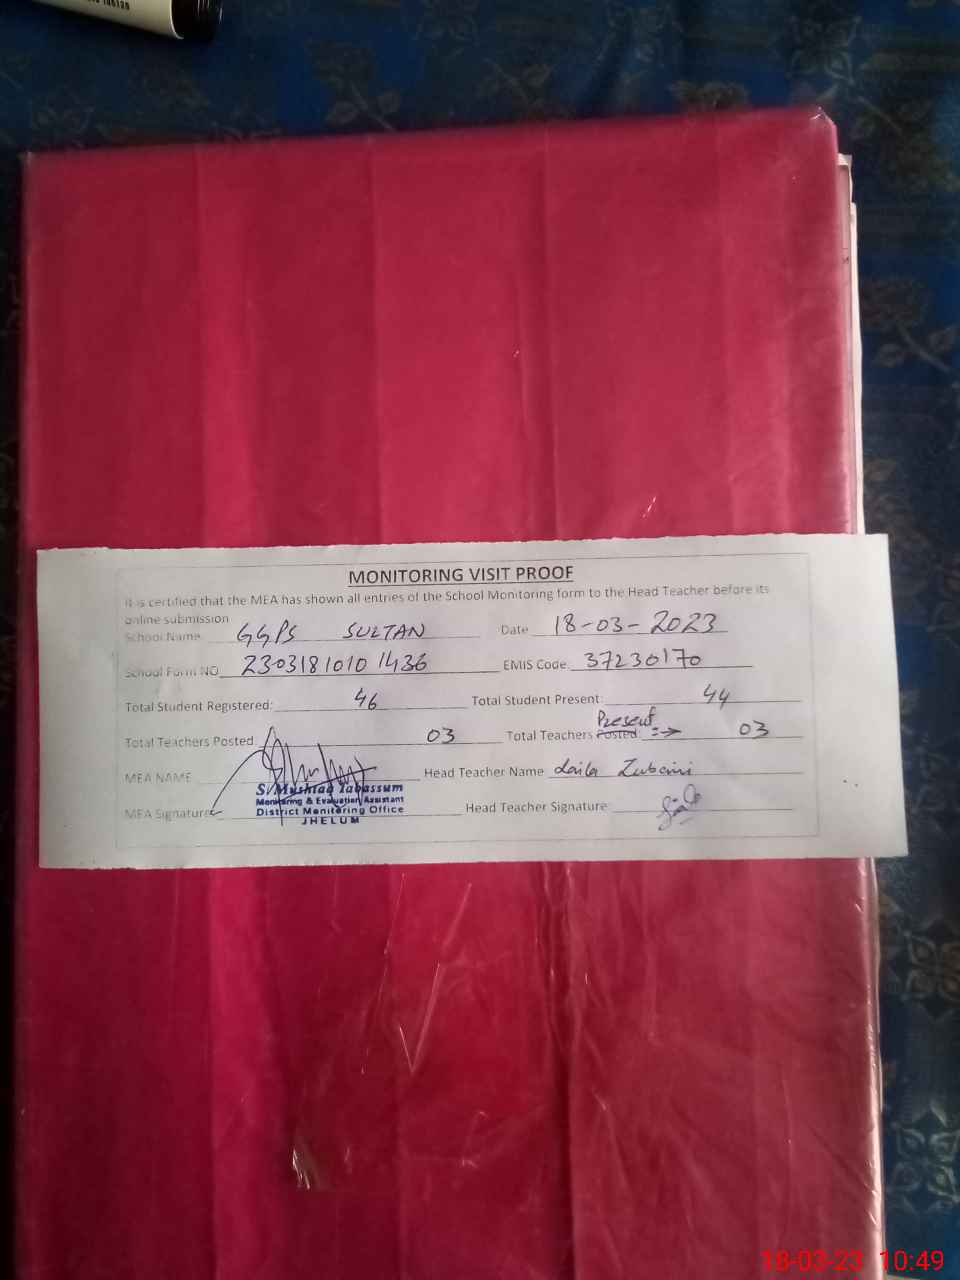 MONITORING VISIT PROOF
It is certified that the MEA has shown all entries of the School Monitoring form to the Head Teacher before its
online submission
School Name GGPS SULTAN Date 18-03-2023
School Form NO 23031810101436 EMIS Code: 37230170
Total Student Registered: 46 Total Student Present: 44
Present
Total Teachers Posted 03 Total Teachers Posted: => 03
MEA NAME Head Teacher Name Laila
S. Mushtaq Tabassum
Monitoring & Evaluation Assistant
MEA Signature Head Teacher Signature
District Monitoring Office
JHELUM
18-03-23 10:49